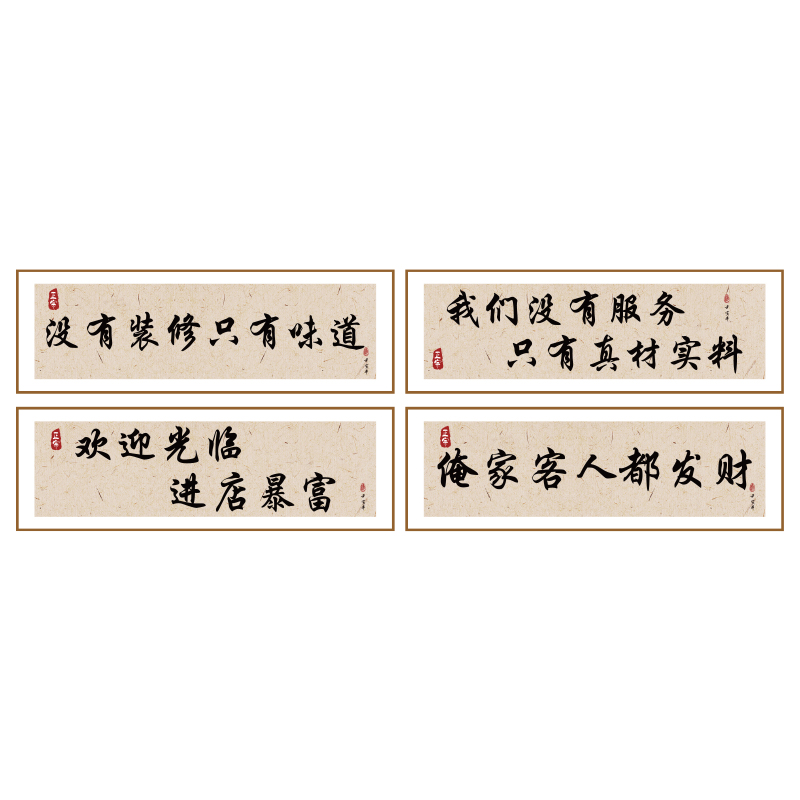 没有装修只有味道
我们没有服务
只有真材实料
欢迎光临
进店暴富
俺家客人都发财